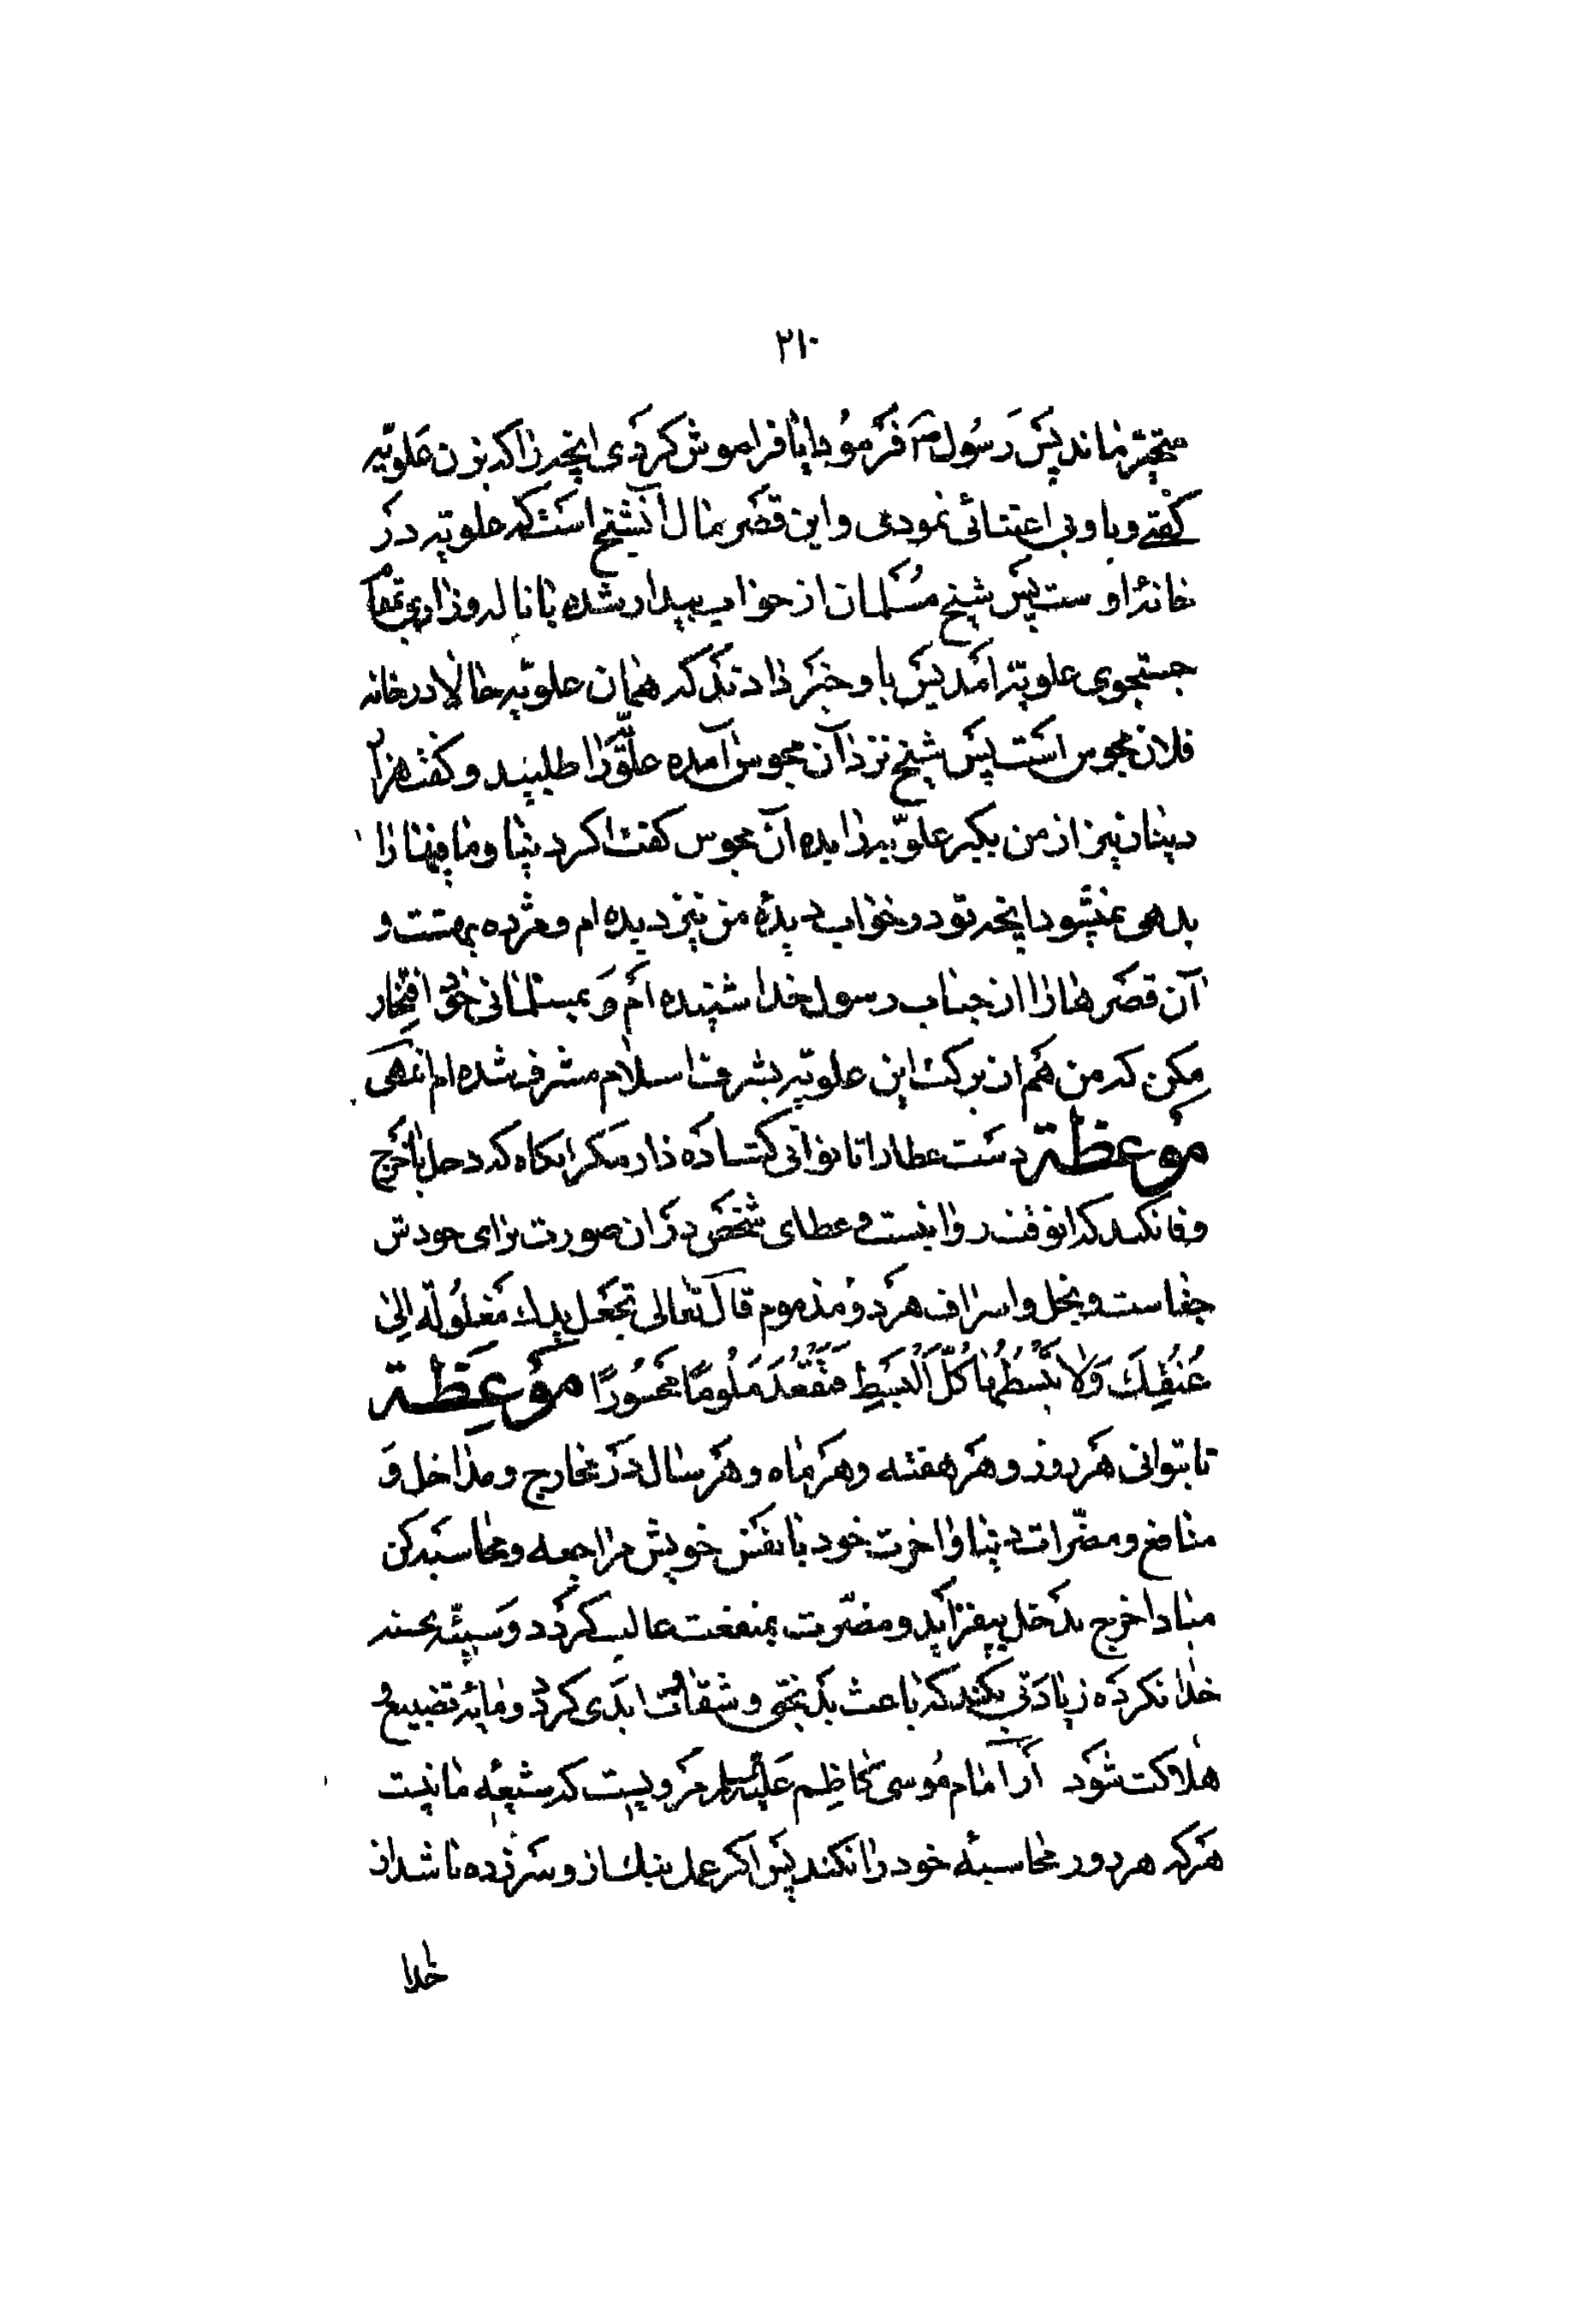 ۲۱۰
متحیر ماند پس رسول ص فرمود ایا فراموش کردی انچه را که بزن علویه
گفتی و باو بی اعتنائی نمودی و این قصر مال آنشیخ است که علویه در
خانهٔ اوست پس شیخ مسلمان از خواب بیدار شده با ناله و زاری بمقام
جستجوی علویه امد پس باو خبر دادند که همان علویه حالا در خانه
فلان مجوس است پس شیخ نزد آن مجوس آمده علویه را طلبید و گفت هزار
دینار نیز از من بگیر علویه را بده آن مجوس گفت اگر دنیا و ما فیها را
بدهی نمیشود انچه تو در خواب دیدهٔ من نیز دیده ام و مژده بهشت و
آن قصر ها را از جناب رسول خدا شنیده ام و بمسلمانی خود افتخار
مکن که من هم از برکت این علویه بشرف اسلام مشرف شده ام انتهی
موعظة دست عطا را تا توانی گشاده دار مگر انگاه که دخل با خرج
وفا نکند که انوقت روا نیست و عطای شخص در ان صورت برای خودش
جفاست و بخل و اسراف هر دو مذموم قال تعالی تجعل یدك مغلولة الی
عُنُقِكَ وَلا تَبْسُطْها كُلَّ الْبَسْطِ فَتَقْعُدَ مَلُومًا مَحْسُورًا مَوْعِظَة
تا بتوانی هر روز و هر هفته و هر ماه و هر سال در مخارج و مداخل و
منافع و مضرات دنیا و اخرت خود با نفس خویش مراجعه و محاسبه کن
مبادا خرج بدخل بیفزاید و مضرت بمنفعت غالب گردد و سیئه بحسنه
خدا نکرده زیادتی بکند که باعث بدبختی و شقاوت ابدی گردد و مایه تضییع و
هلاکت شود از امام موسی کاظم علیه السلام مرویست که شیعه ما نیست
هر که هر روز محاسبهٔ خود را نکند پس اگر عمل نیك از و سر زده باشد از
خدا